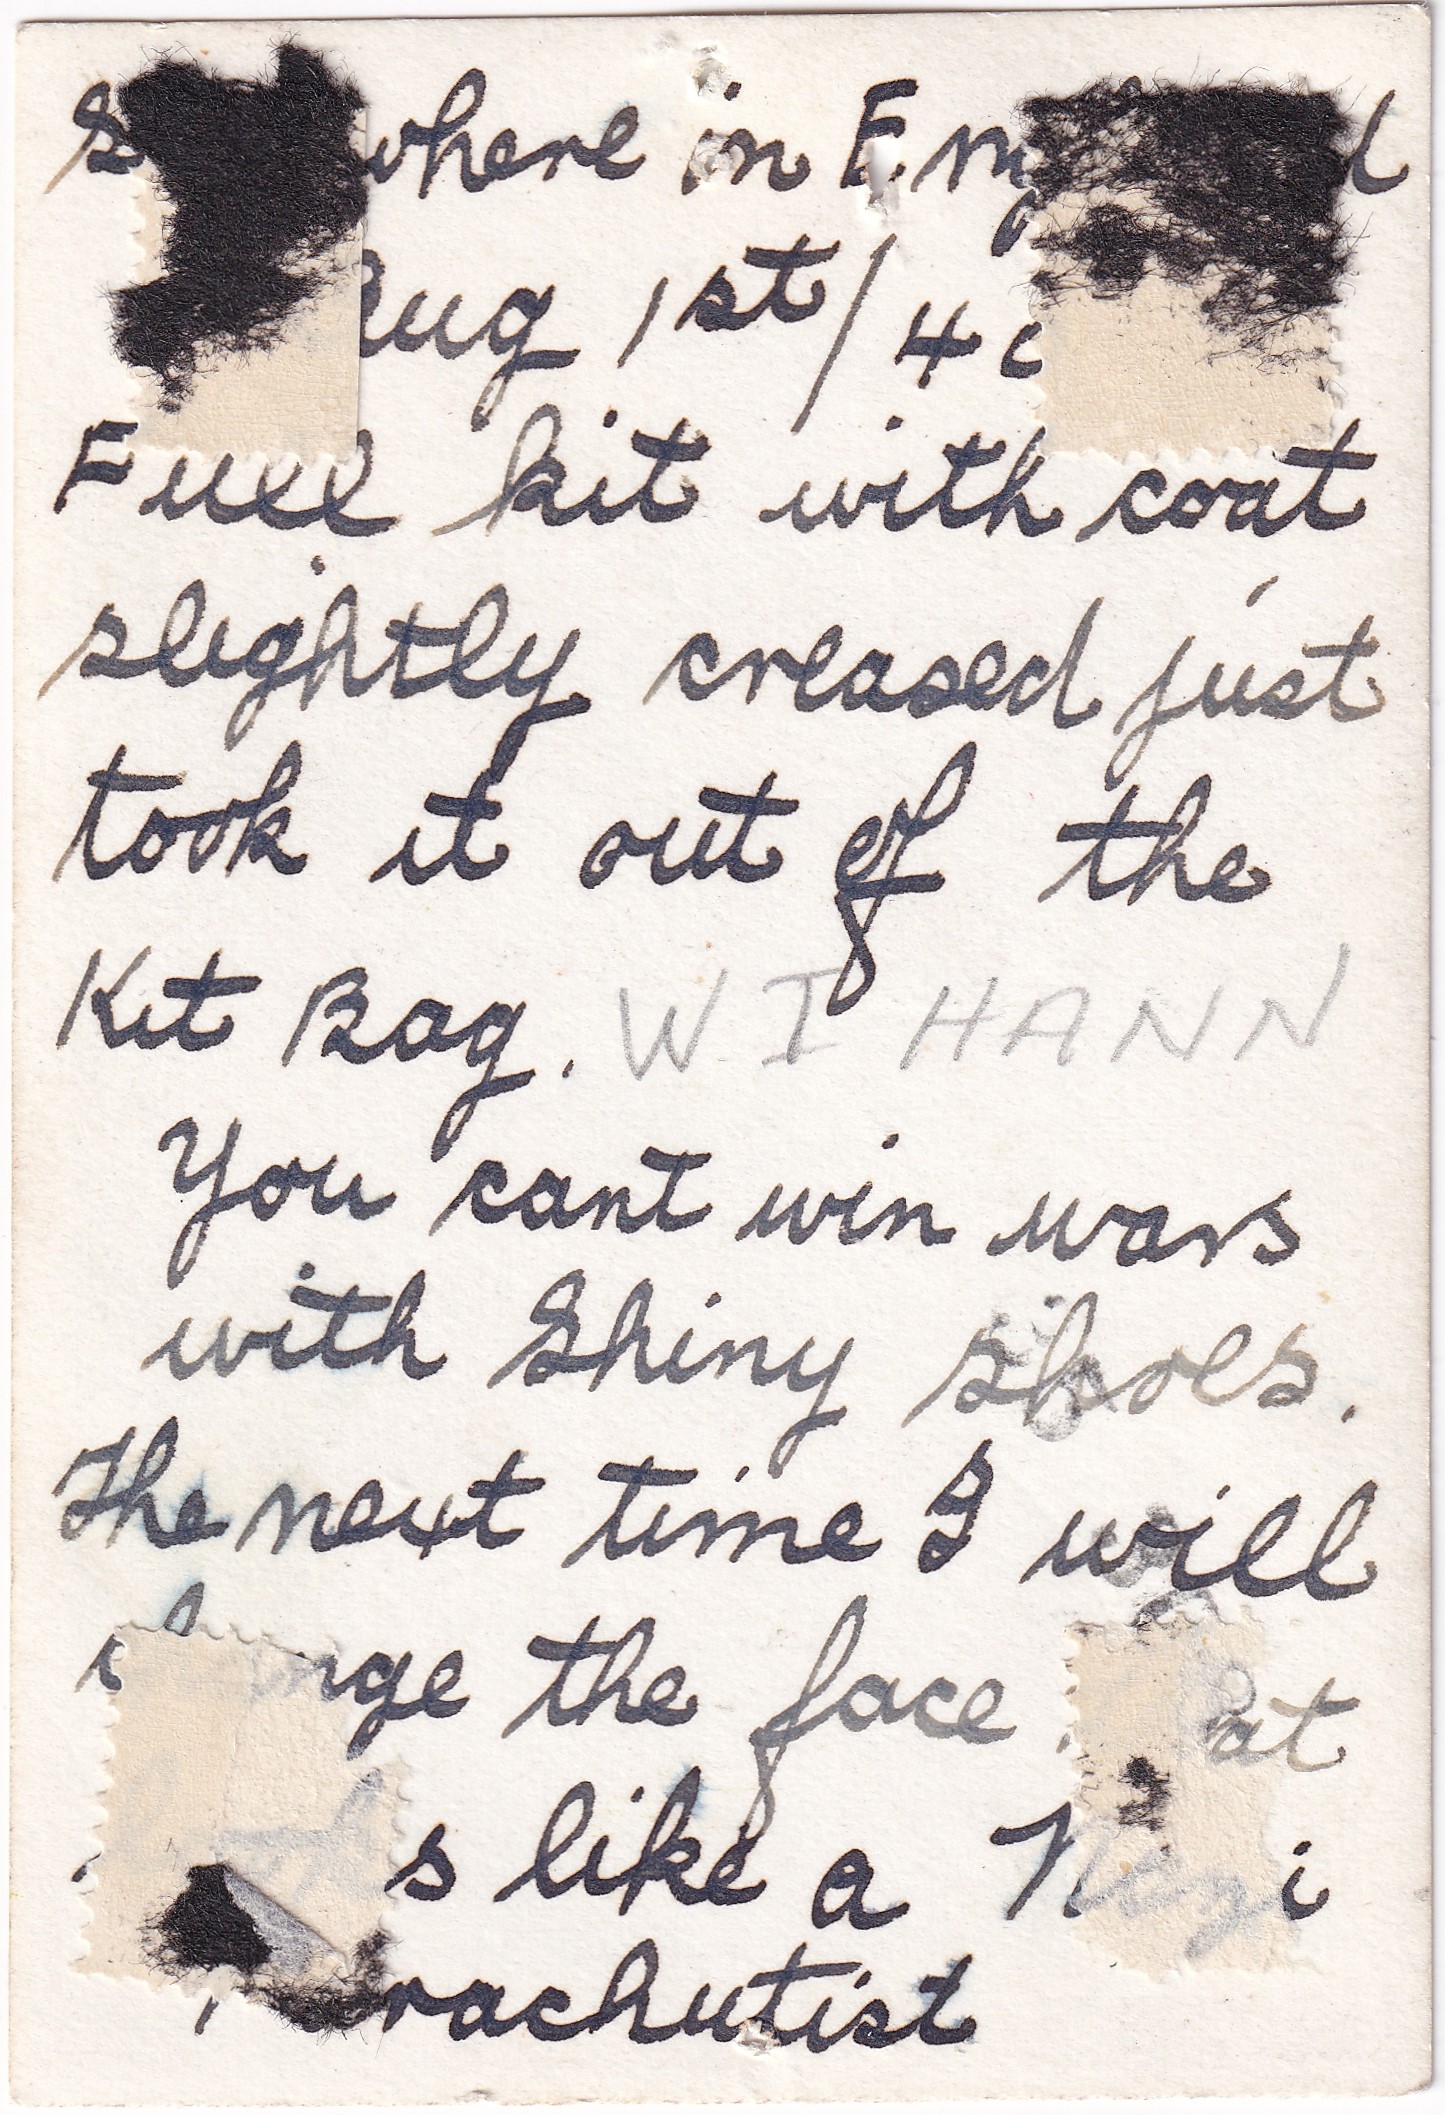 where in Eng
Aug 1st/4
Full kit with coat
slightly creased just
took it out of the
Kit Bag. W I HANN
You cant win wars
with Shiny shoes.
The next time I will
change the face. at
s like a Nazi
rachutist